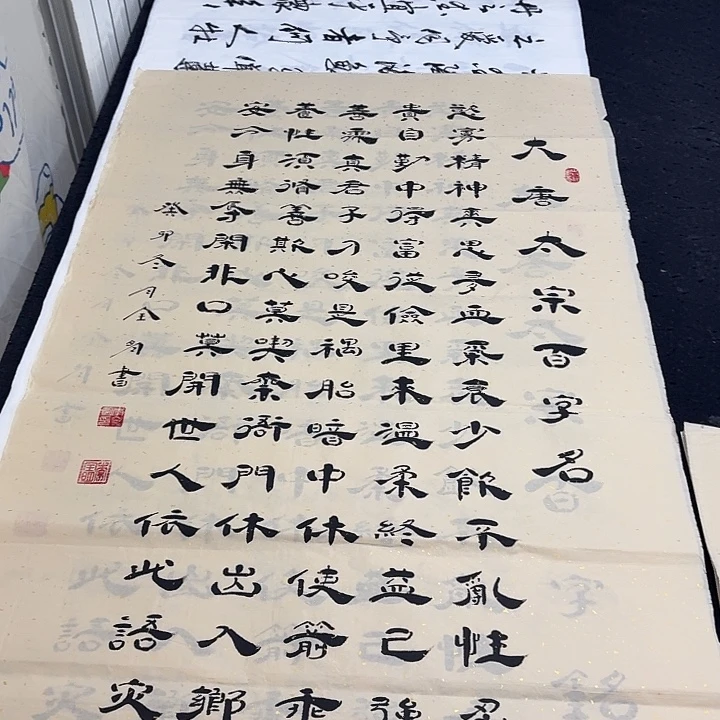 大唐太宗百字名
慾寡精神爽思多血氣衰少飲不亂性忍
貴自勤中得富從儉里来温柔終益己強
善柔真君子刁唆是禍胎暗中休使箭乖
養性須脩善欺心莫喫齋衙門休出入鄉
安分身無辱閑非口莫開世人依此語灾
癸卯冬月書